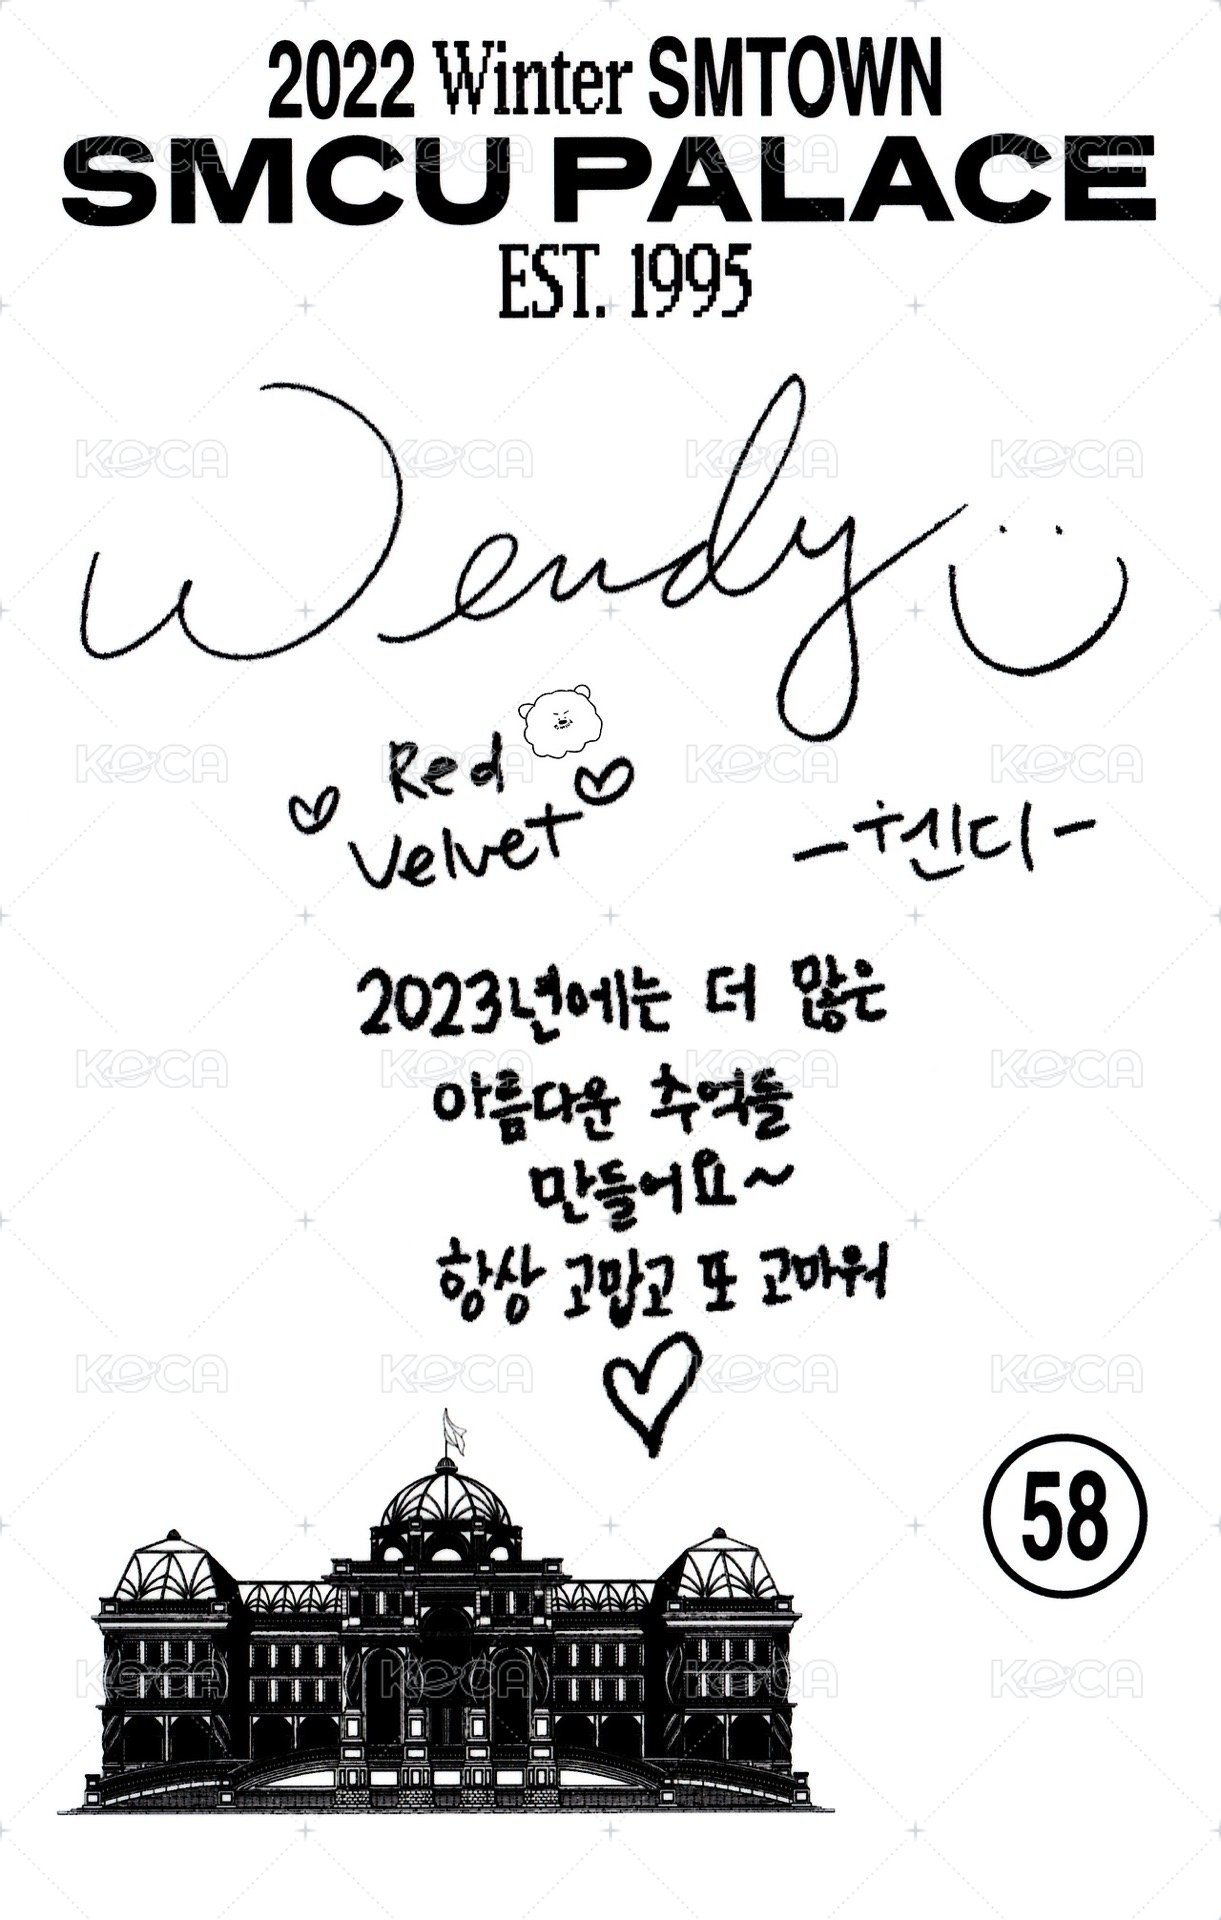 2022 Winter SMTOWN
SMCU PALACE
EST. 1995
Wendy
Red
Velvet
-웬디-
2023년에는 더 많은
아름다운 추억들
만들어요~
항상 고맙고 또 고마워
58
KOCA